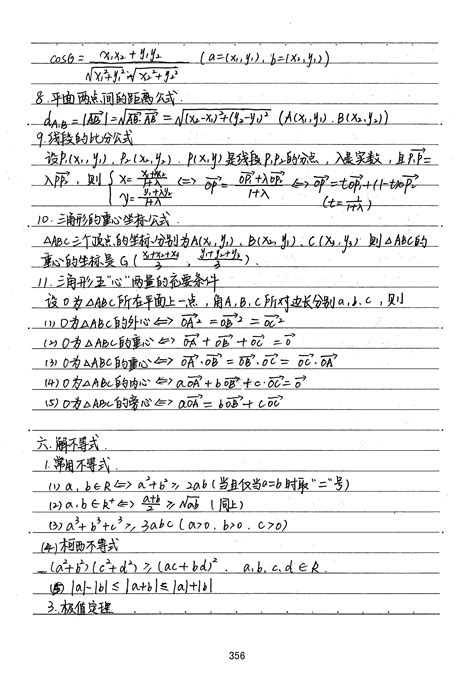 cosθ = x₁x₂ + y₁y₂ / √x₁²+y₁² · √x₂²+y₂² (a=(x₁,y₁), b=(x₂,y₂))
8.平面两点间的距离公式
d_A,B = |AB→| = √AB→·AB→ = √(x₂-x₁)²+(y₂-y₁)² (A(x₁,y₁). B(x₂,y₂))
9.线段的比分公式
设P₁(x₁,y₁), P₂(x₂,y₂). P(x,y)是线段P₁P₂的分点, λ是实数, 且P₁P→=
λPP₂→, 则 { x= x₁+λx₂/1+λ y= y₁+λy₂/1+λ <=> OP→= OP₁→+λOP₂→/1+λ <=> OP→=tOP₁→+(1-t)OP₂→
(t=1/1+λ)
10.三角形的重心坐标公式
△ABC三个顶点的坐标分别为A(x₁,y₁), B(x₂,y₂), C(x₃,y₃) 则△ABC的
重心的坐标是G(x₁+x₂+x₃/3, y₁+y₂+y₃/3).
11.三角形五“心”向量的充要条件
设O为△ABC所在平面上一点, 角A,B,C所对边长分别a,b,c, 则
(1) O为△ABC的外心<=> OA→²=OB→²=OC→²
(2) O为△ABC的重心<=> OA→+OB→+OC→=0→
(3) O为△ABC的垂心<=> OA→·OB→=OB→·OC→=OC→·OA→
(4) O为△ABC的内心<=> aOA→+bOB→+c·OC→=0→
(5) O为△ABC的旁心<=> aOA→=bOB→+cOC→
六.解不等式
1.常用不等式
(1) a, b∈R<=> a²+b²≥2ab (当且仅当a=b时取“=”号)
(2) a, b∈R⁺<=> a+b/2 ≥√ab (同上)
(3) a³+b³+c³≥3abc (a>0. b>0. c>0)
(4) 柯西不等式
(a²+b²)(c²+d²)≥(ac+bd)². a,b,c,d∈R.
(5) |a|-|b|≤|a+b|≤|a|+|b|
3.极值定理
356